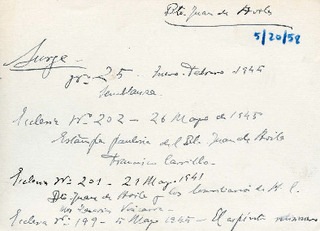 Bto. Juan de Avila
5/20/58
Surge
nº 25. Enero-Febrero 1945
Semblanza
Eclesia Nº 202 - 26 Mayo de 1945
Estampa paulina del Bt. Juan de Avila
Francisco Carrillo
Eclesia Nº 201 - 21 May. 1941
Bt. Juan de Avila y los Seminarios de
Eclesia Nº 199 - 5 Mayo 1945 - El espíritu